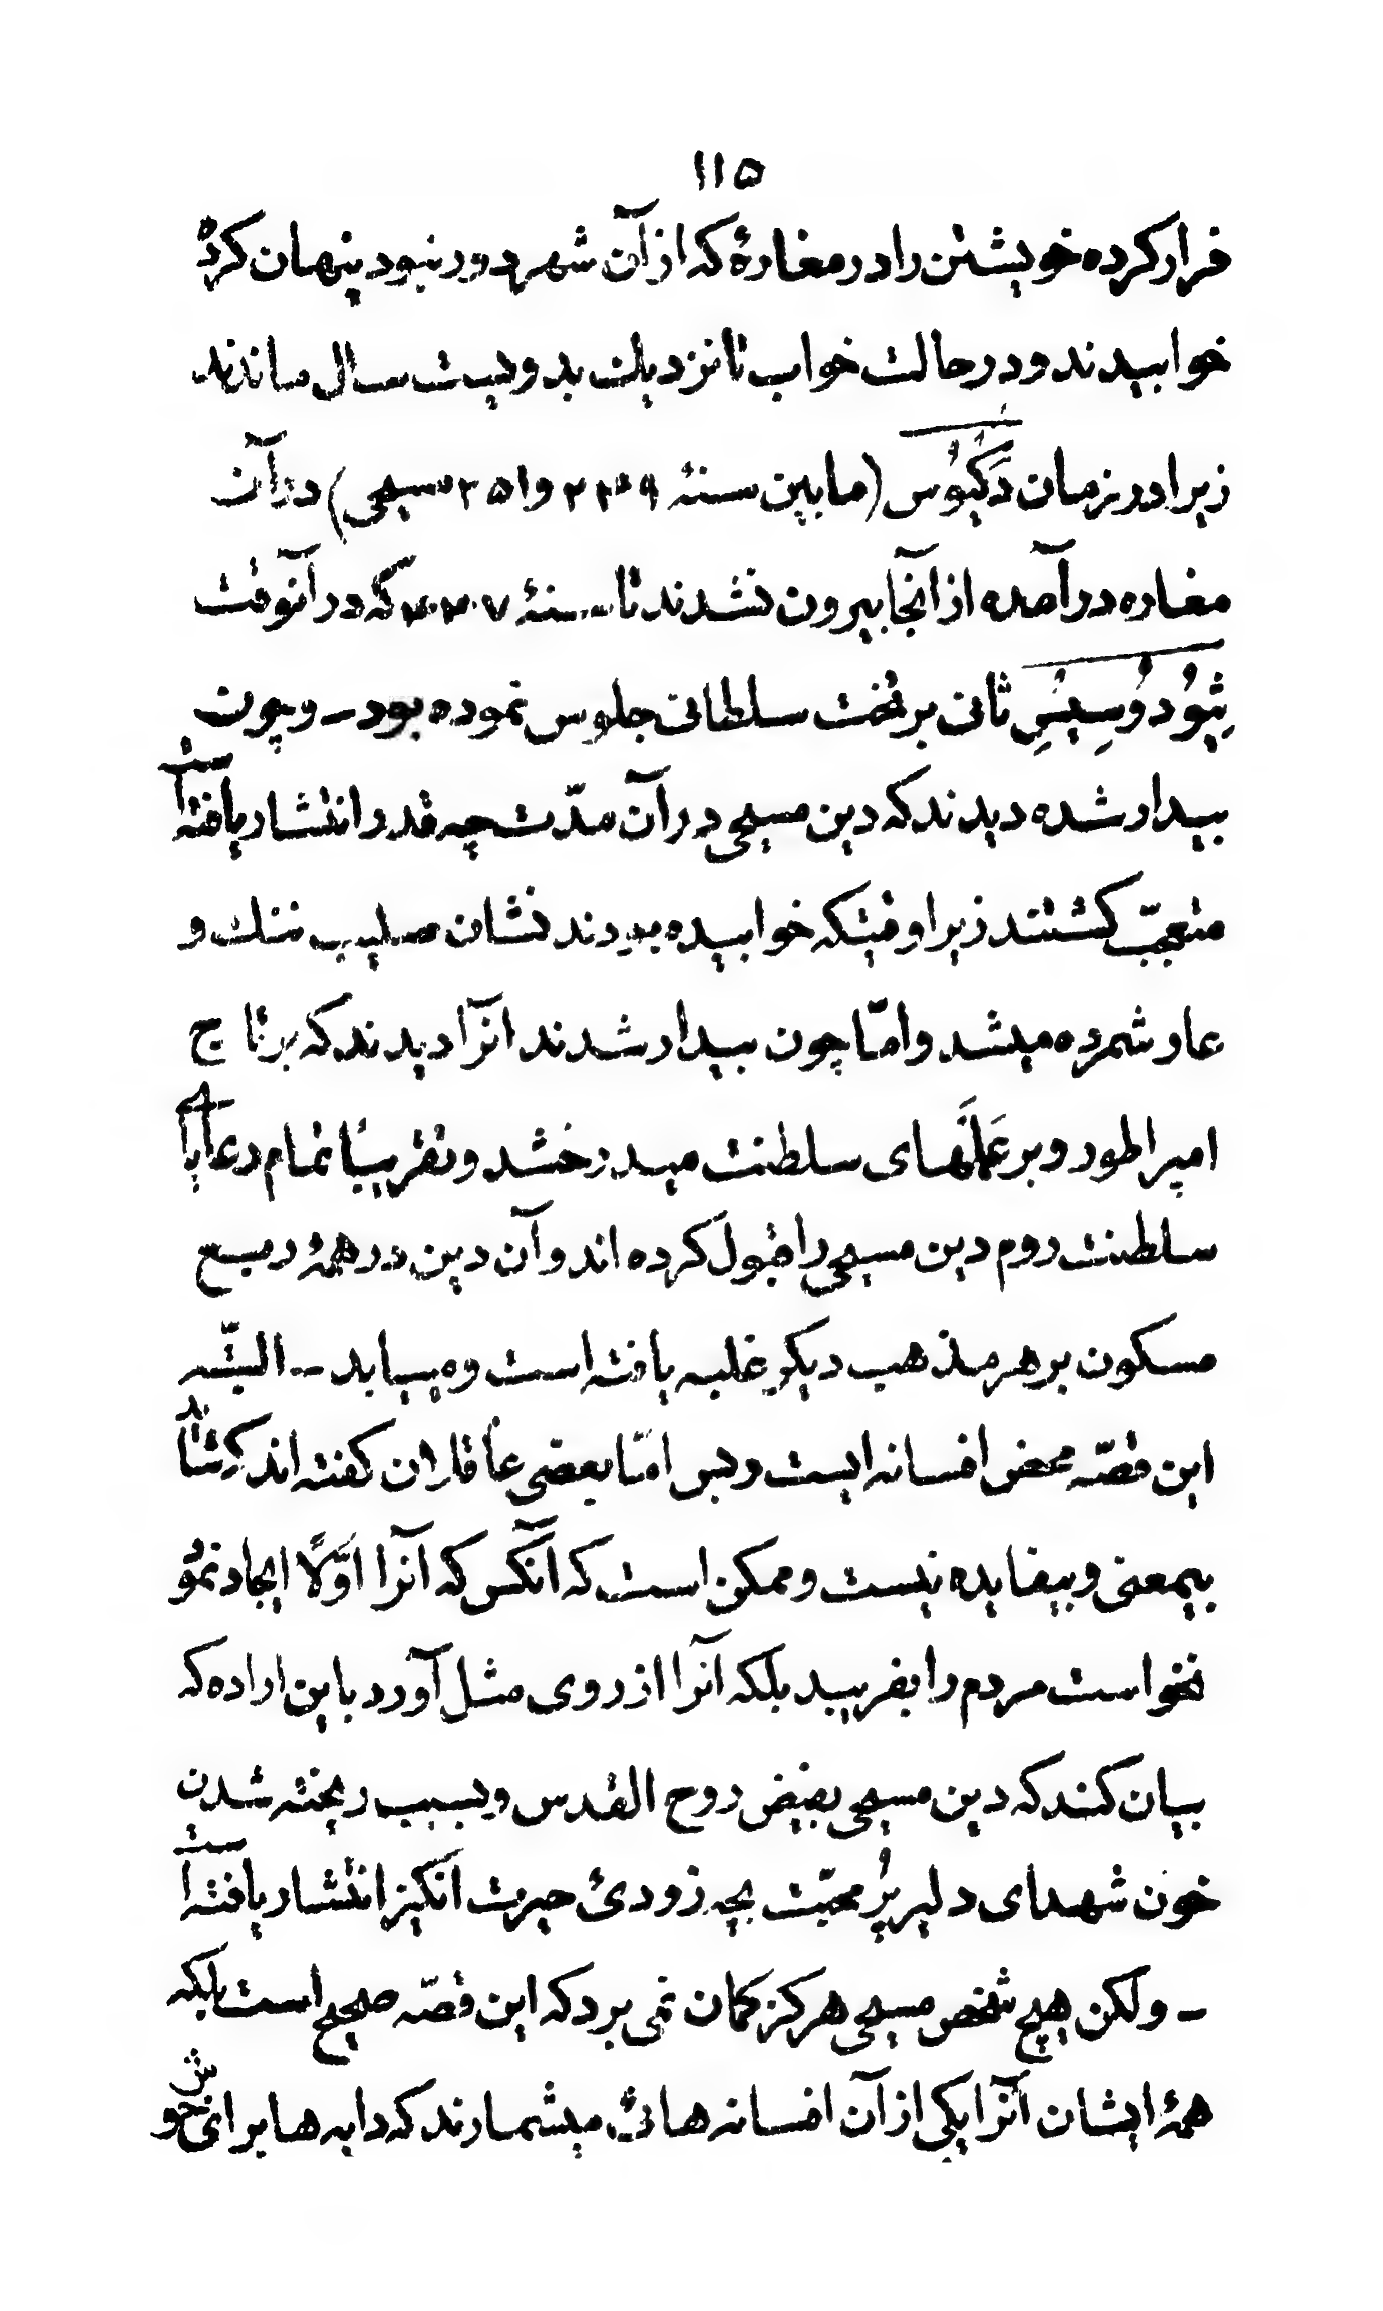 ۱۱۵
فرار کرده خویشتن را در مغارهٔ که از آن شهر دور نبود پنهان کرده
خوابیدند و در حالت خواب تا نزدیك بدویست سال ماندند
زیرا در زمان دَکیُوُس (مابین سنهٔ ۲۴۹ و ۲۵۱ مسیحی) در آن
مغاره درآمده از آنجا بیرون نشدند تا سنهٔ ۴۴۷ که در آنوقت
ثِیُودُوسِیُسِ ثانی بر تخت سلطانی جلوس نموده بود ــ و چون
بیدار شده دیدند که دین مسیحی در آن مدّت چه قدر انتشار یافته است
متعجّب کشتند زیرا وقتیکه خوابیده بودند نشان صلیب ننك و
عار شمرده میشد و امّا چون بیدار شدند آنرا دیدند که بر تاج
امپراطور و بر عَلَمهای سلطنت میدرخشد و تقریبًا تمام رعایای
سلطنت روم دین مسیحی را قبول کرده اند و آن دین در همهٔ ربع
مسکون بر هر مذهب دیکر غلبه یافته است و مییابد ــ البتّه
این قصّه محض افسانه ایست و بس امّا بعضی عاقلان کفته اند که شاید
بیمعنی و بیفایده نیست و ممکن است که آنکس که آنرا اوّلًا ایجاد نمود
نخواست مردم را بفریبد بلکه آنرا از روی مثل آورد باین اراده که
بیان کند که دین مسیحی بفیض روح القدس و بسبب ریخته شدن
خون شهدای دلیر پُر محبّت بچه زودئ حیرت انکیز انتشار یافته است
ــ ولکن هیچ شخص مسیحی هرکز کمان نمی برد که این قصّه صحیح است بلکه
همهٔ ایشان آنرا یکی از آن افسانه هائی میشمارند که دایه ها برای خوش